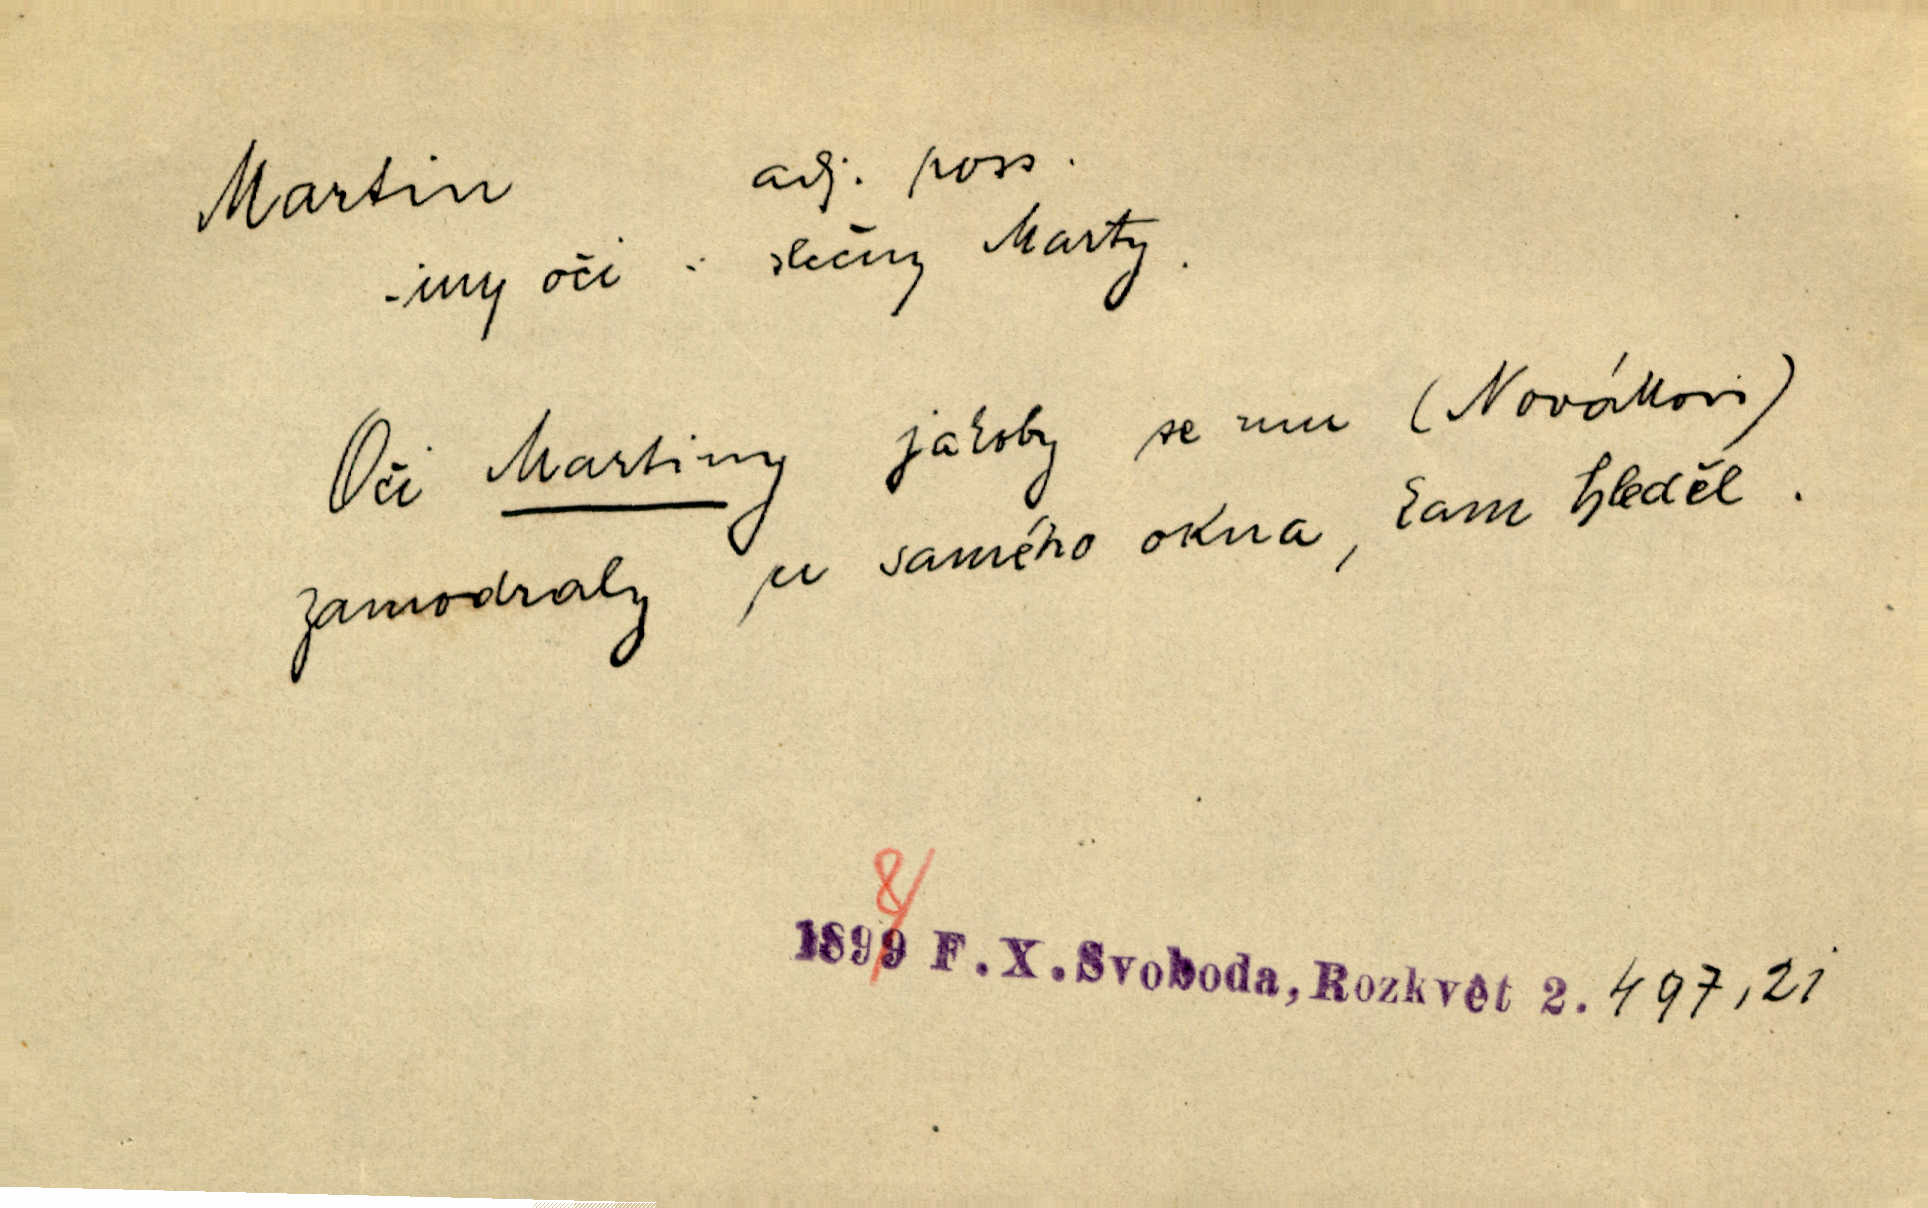 Martin adj. poss.
-iny oči : slečny Marty.
Oči Martiny jakoby se mu (Novákovi)
zamodraly u samého okna, kam hleděl.
8/
1899 F.X.Svoboda, Rozkvět 2. 497,21